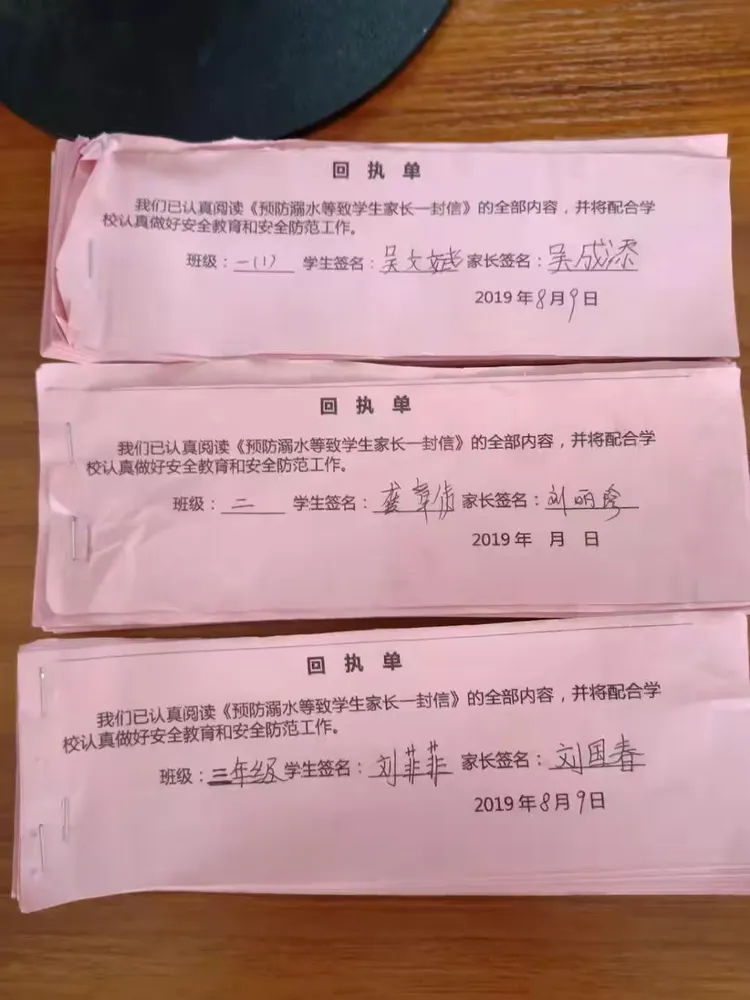 回执单
我们已认真阅读《预防溺水等致学生家长一封信》的全部内容，并将配合学
校认真做好安全教育和安全防范工作。
班级：一(1) 学生签名：吴文斌 家长签名：吴成添
2019年8月9日
回执单
我们已认真阅读《预防溺水等致学生家长一封信》的全部内容，并将配合学
校认真做好安全教育和安全防范工作。
班级：二 学生签名：龚章倩 家长签名：刘丽珍
2019年 月 日
回执单
我们已认真阅读《预防溺水等致学生家长一封信》的全部内容，并将配合学
校认真做好安全教育和安全防范工作。
班级：三年级 学生签名：刘菲菲 家长签名：刘国春
2019年8月9日